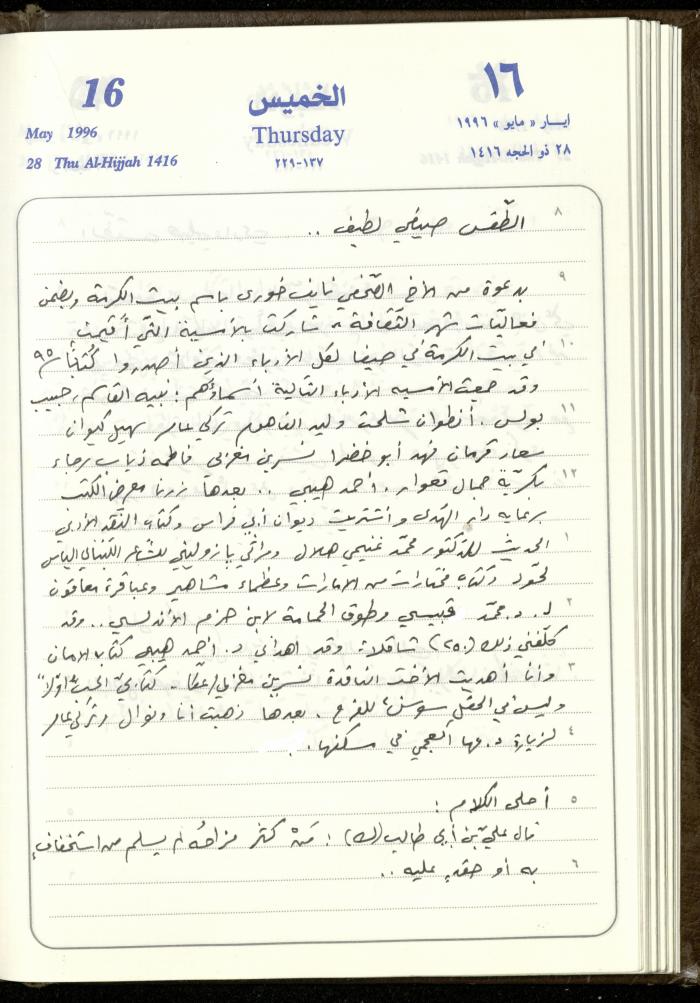 16
الخميس
١٦
May 1996
Thursday
ايار « مايو » ١٩٩٦
28 Thu Al-Hijjah 1416
٢٢٩-١٣٧
٢٨ ذو الحجه ١٤١٦
٨
الطّقس صيفي لطيف ..
٩
بدعوة من الأخ الصّحفي نايف خوري باسم بيت الكرمة وبضمن
فعاليّات شهر الثّقافة، شاركت بالأمسية التّي أقيمت
١٠
في بيت الكرمة في حيفا لكل الأدباء الذين أصدروا كُتبًا ٩٥
وقد ضمت الأمسيه الأدباء التالية أسماؤهم: نبيه القاسم، حبيب
١١
بولس، أنطوان شلحت وليد الفاهوم تركي عامر سهيل كيوان
سعاد قرمان فهد أبو خضرا نسرين مغربي فاطمه ذياب رجاء
١٢
بكريّة جمال قعوار، أحمد هيبي .. بعدها زرنا معرض الكتب
برعايه دار الهدى واشتريت ديوان أبي فراس وكتاب النّقد الأدبي
١
الحديث للدّكتور محمّد غنيمي هلال ومراثي بازوليني للشّاعر اللّبناني الياس
لحّود وكتاب مختارات من الامارات وعظماء مشاهير وعباقرة معاقون
٢
لـ. د. محمّد قبيسي وطوق الحمامة لابن حزم الأندلسي .. وقد
كلّفني ذلك (٢٥٠) شاقلا. وقد اهداني د. احمد هيبي كتاب الامان
٣
وأنا أهديت الأخت الناقدة نسرين مغربي/عطا. كتابيّ الحبّ اوّلاً
وليس في الحقل سوسن، للفرح. بعدها ذهبت أنا ونوال وتركي عامر
٤
لزيارة د. مها العجمي في مسكنها.
٥
أحلى الكلام:
قال علي بن أبي طالب (ك): مَنْ كثر مزاحُه لم يسلم من استخفافٍ
٦
به أو حقدٍ عليه ..